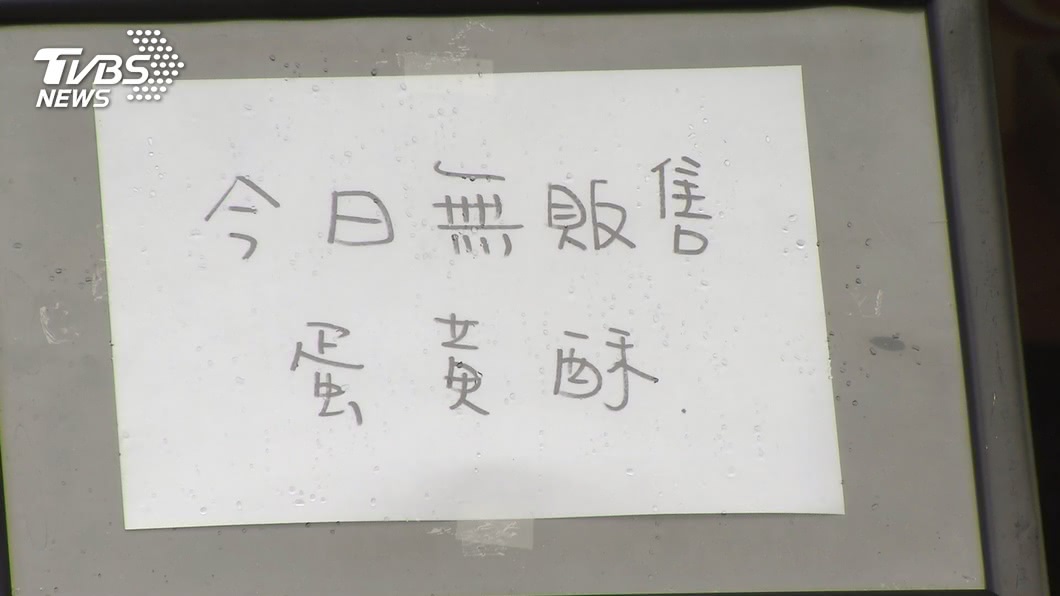 TVBS
NEWS
今日無販售
蛋黃酥.